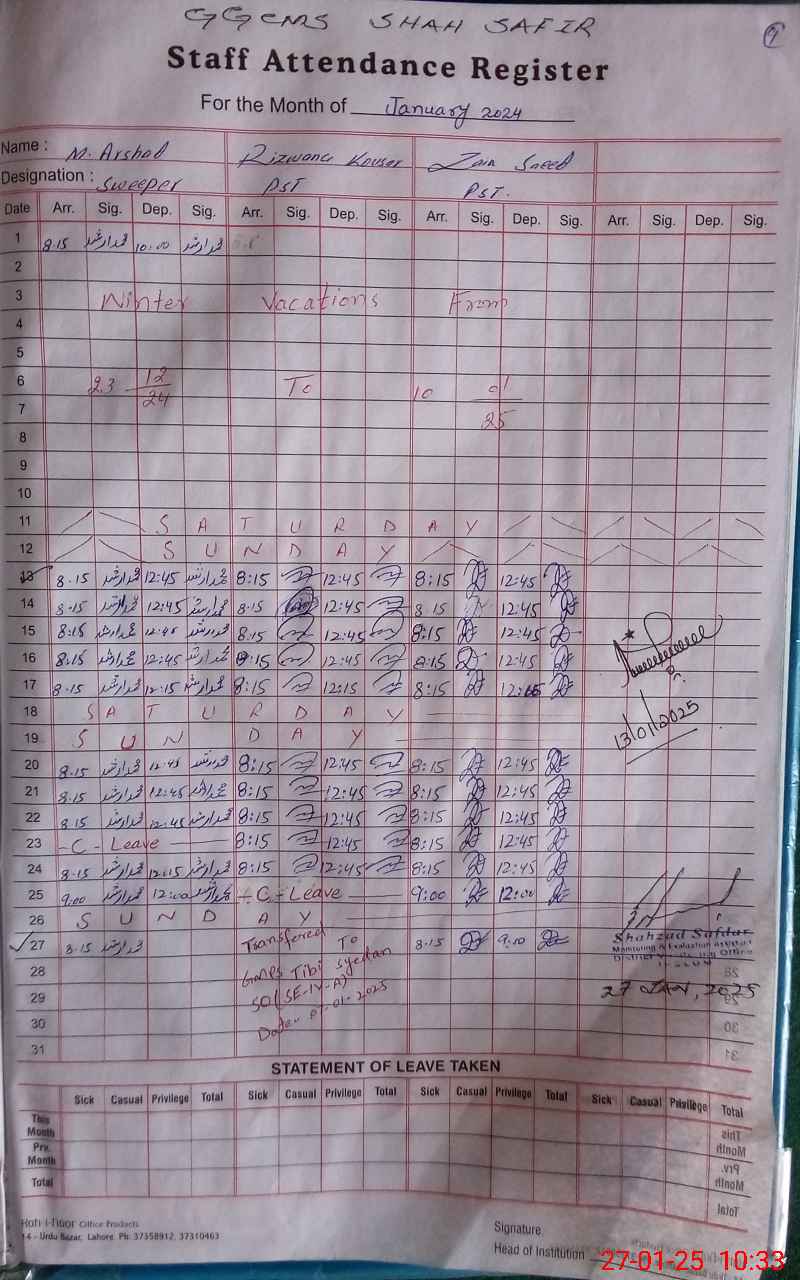 GGCMS SHAH SAFIR
Staff Attendance Register
For the Month of January 2024
Name : M. Arshad Rizwana Kousar Zain Saeed
Designation : Sweeper PST PST.
Date Arr. Sig. Dep. Sig. Arr. Sig. Dep. Sig. Arr. Sig. Dep. Sig. Arr. Sig. Dep. Sig.
1 8.15 محمد ارشد 10:00 محمد ارشد
2
3 Winter Vacations From
4
5
6 23 12/24 To 10 01/25
7
8
9
10
11 S A T U R D A Y
12 S U N D A Y
13 8.15 محمد ارشد 12:45 محمد ارشد 8:15 12:45 8:15 12:45
14 8.15 محمد ارشد 12:45 محمد ارشد 8.15 12:45 8.15 12:45
15 8:15 محمد ارشد 12.45 محمد ارشد 8.15 12:45 8:15 12:45
16 8:15 محمد ارشد 12:45 محمد ارشد 8:15 12:45 8:15 12:45
17 8.15 محمد ارشد 12:15 محمد ارشد 8:15 12:15 8:15
18 S A T U R D A Y
19 S U N D A Y
13/01/2025
20 8.15 محمد ارشد 12:45 محمد ارشد 8:15 12:45 8:15 12:45
21 8.15 محمد ارشد 12:45 محمد ارشد 8:15 12:45 8:15 12:45
22 8.15 محمد ارشد 12:45 محمد ارشد 8:15 12:45 8:15 12:45
23 -C- Leave 8:15 12:45 8:15 12:45
24 8.15 محمد ارشد 12:15 محمد ارشد 8:15 12:45 8:15 12:45
25 9:00 محمد ارشد 12:00 محمد ارشد -C-Leave 9:00 12:00
26 S U N D A Y
27 8.15 محمد ارشد Transfered To 8.15 9:10
Shahzad Safdar
Monitoring & Evaluation
28 GMPS Tibi Syedan
29 SO(SE-IV-A)
27 JAN, 2025
30 Date. 01-01-2025
31
STATEMENT OF LEAVE TAKEN
Sick Casual Privilege Total Sick Casual Privilege Total Sick Casual Privilege Total Sick Casual Privilege Total
This Month
Prv. Month
Total
Kohi-Noor Office Products
14 - Urdu Bazar, Lahore. Ph: 37358912, 37310463
Signature
Head of Institution
27-01-25 10:33